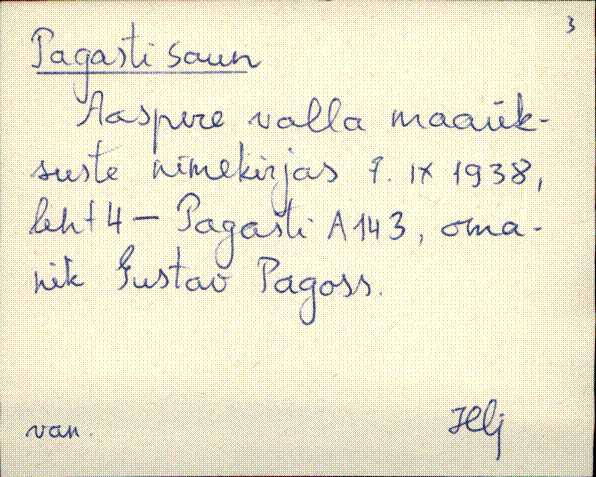 3
Pagasti saun
Aaspere valla maaük-
suste nimekirjas 9. IX 1938,
leht 4 – Pagasti A 143, oma-
nik Gustav Pagoss.
van.
Hlj